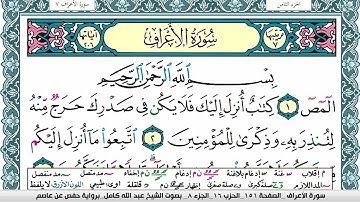 الجزء الثامن
سورة الأعراف ٧
ترتيبها ٧
سُورَةُ الأَعْرَافِ
آياتها ٢٠٦
بِسْمِ ٱللَّهِ ٱلرَّحْمَٰنِ ٱلرَّحِيمِ
الٓمٓصٓ ١ كِتَٰبٌ أُنزِلَ إِلَيْكَ فَلَا يَكُن فِي صَدْرِكَ حَرَجٌ مِّنْهُ
لِتُنذِرَ بِهِۦ وَذِكْرَىٰ لِلْمُؤْمِنِينَ ٢ ٱتَّبِعُوا۟ مَآ أُنزِلَ إِلَيْكُم
سورة الأعراف الصفحة ١٥١ الحزب ١٦ الجزء ٨ بصوت الشيخ عبد الله كامل برواية حفص عن عاصم